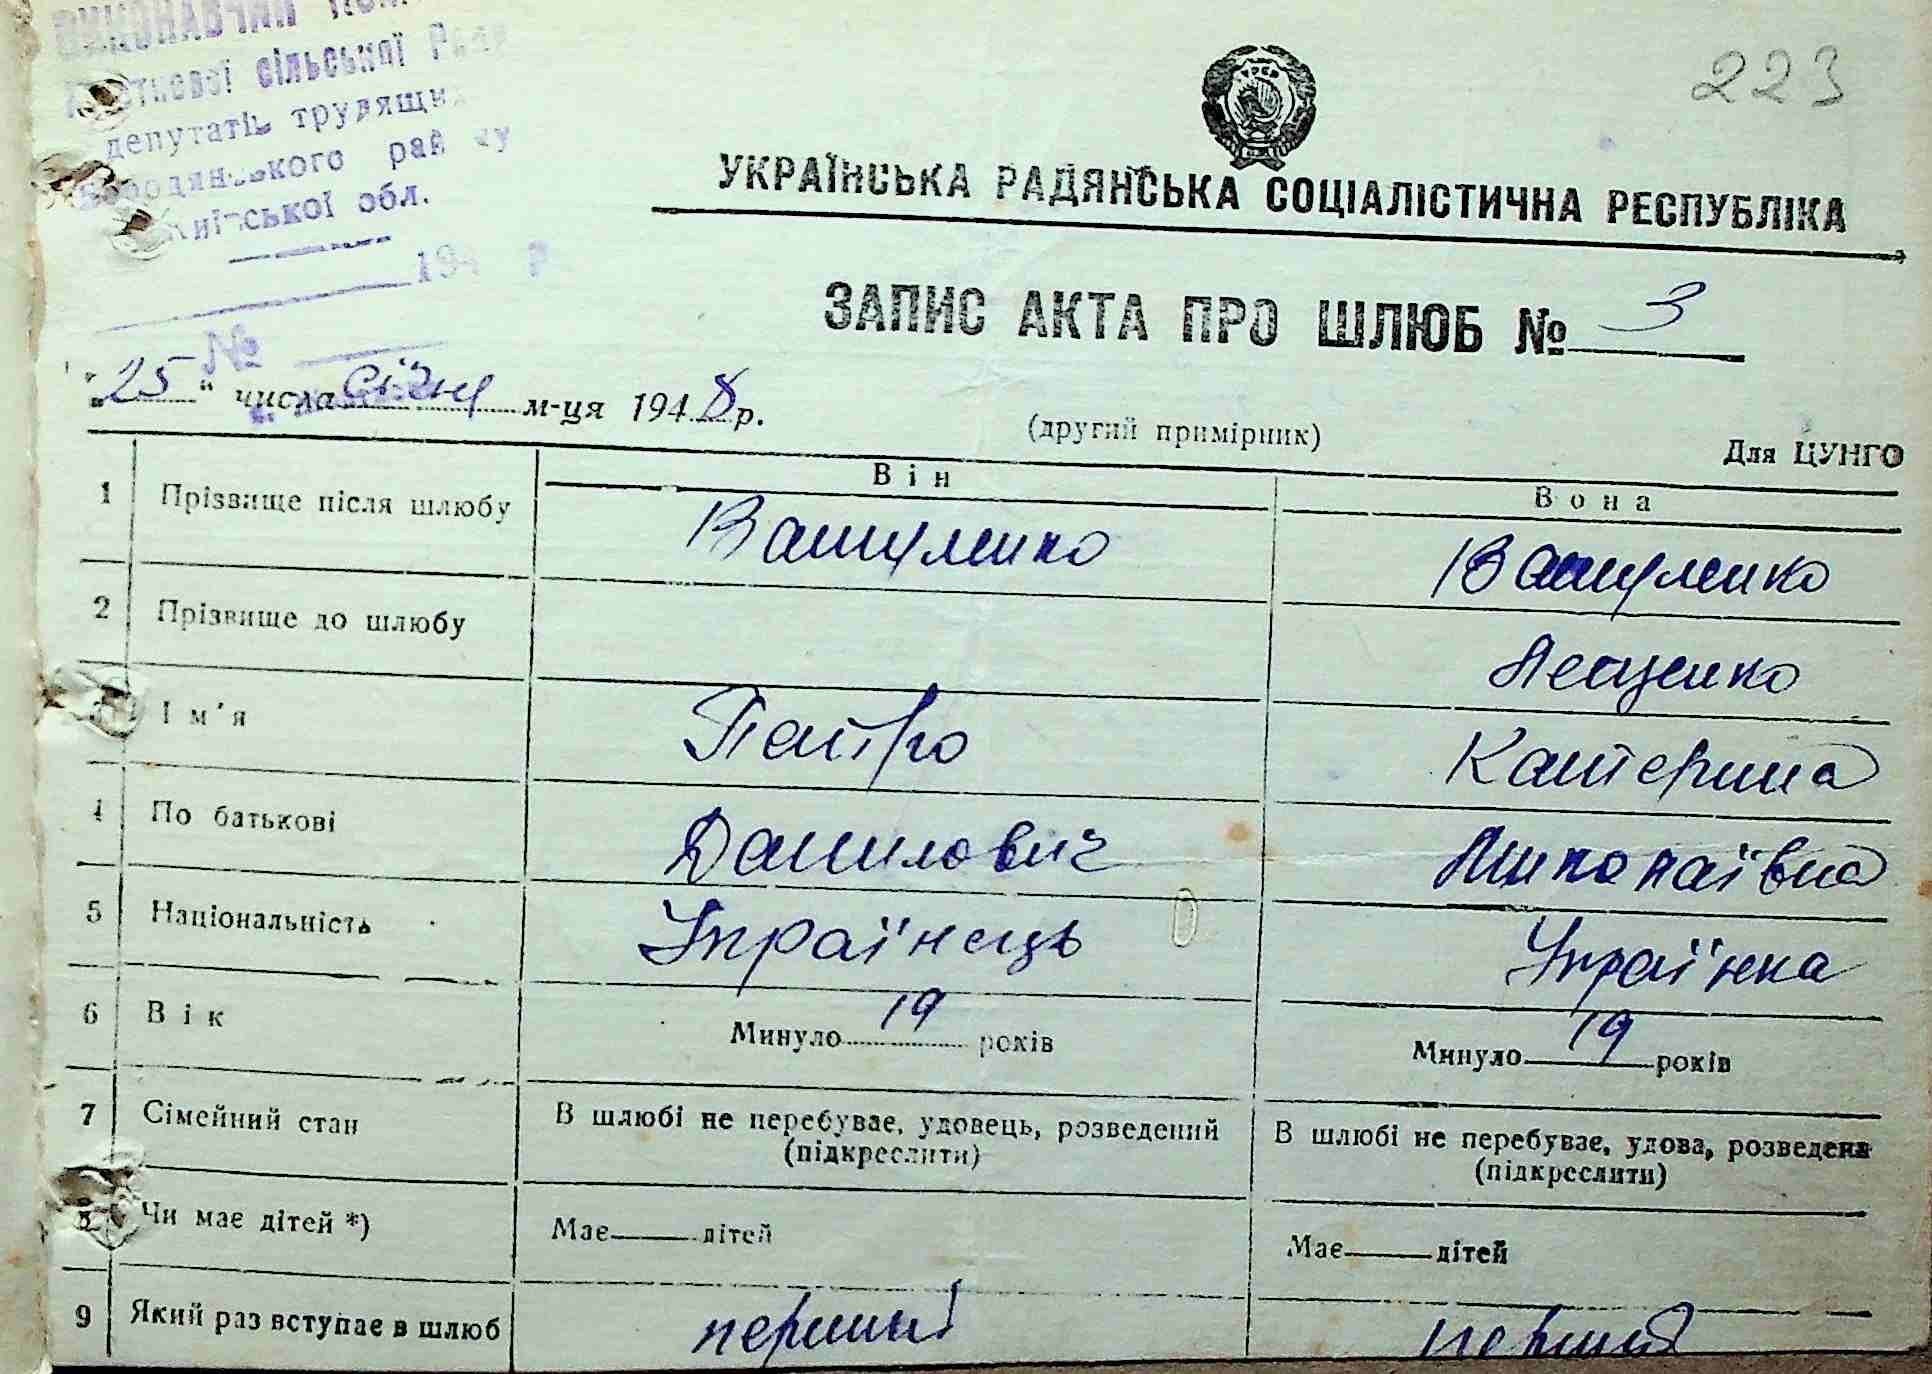 ВИКОНАВЧИЙ
сільської Ради
депутатів трудящих
Бородянського району
Київської обл.
194 р.
№
223
УРСР
УКРАЇНСЬКА РАДЯНСЬКА СОЦІАЛІСТИЧНА РЕСПУБЛІКА
ЗАПИС АКТА ПРО ШЛЮБ № 3
„25“ числа січня м-ця 1948 р.
(другий примірник)
Для ЦУНГО
Він
Вона
1 Прізвище після шлюбу Ващуленко Ващуленко
2 Прізвище до шлюбу Лещенко
3 Ім'я Петро Катерина
4 По батькові Данилович Миколаївна
5 Національність Українець Українка
6 Вік Минуло 19 років Минуло 19 років
7 Сімейний стан В шлюбі не перебуває, удовець, розведений (підкреслити) В шлюбі не перебуває, удова, розведена (підкреслити)
8 Чи має дітей *) Має дітей Має дітей
9 Який раз вступає в шлюб перший перший